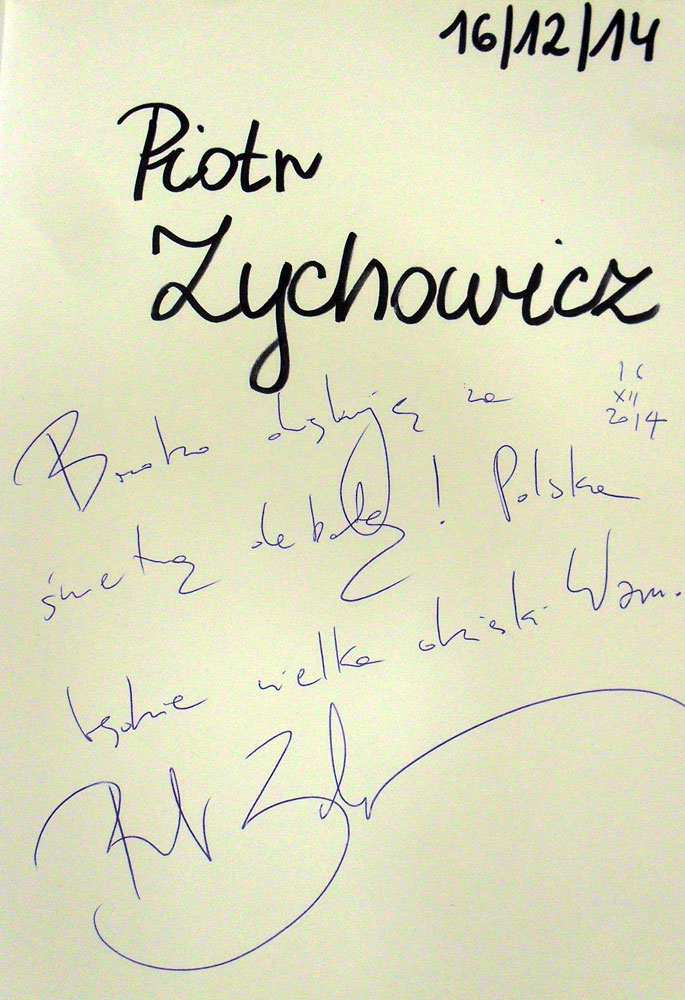 16/12/14
Piotr
Zychowicz
Bardzo dziękuję za
16
XII
2014
świetną debatę! Polska
będzie wielka dzięki Wam.
Piotr Zychowicz